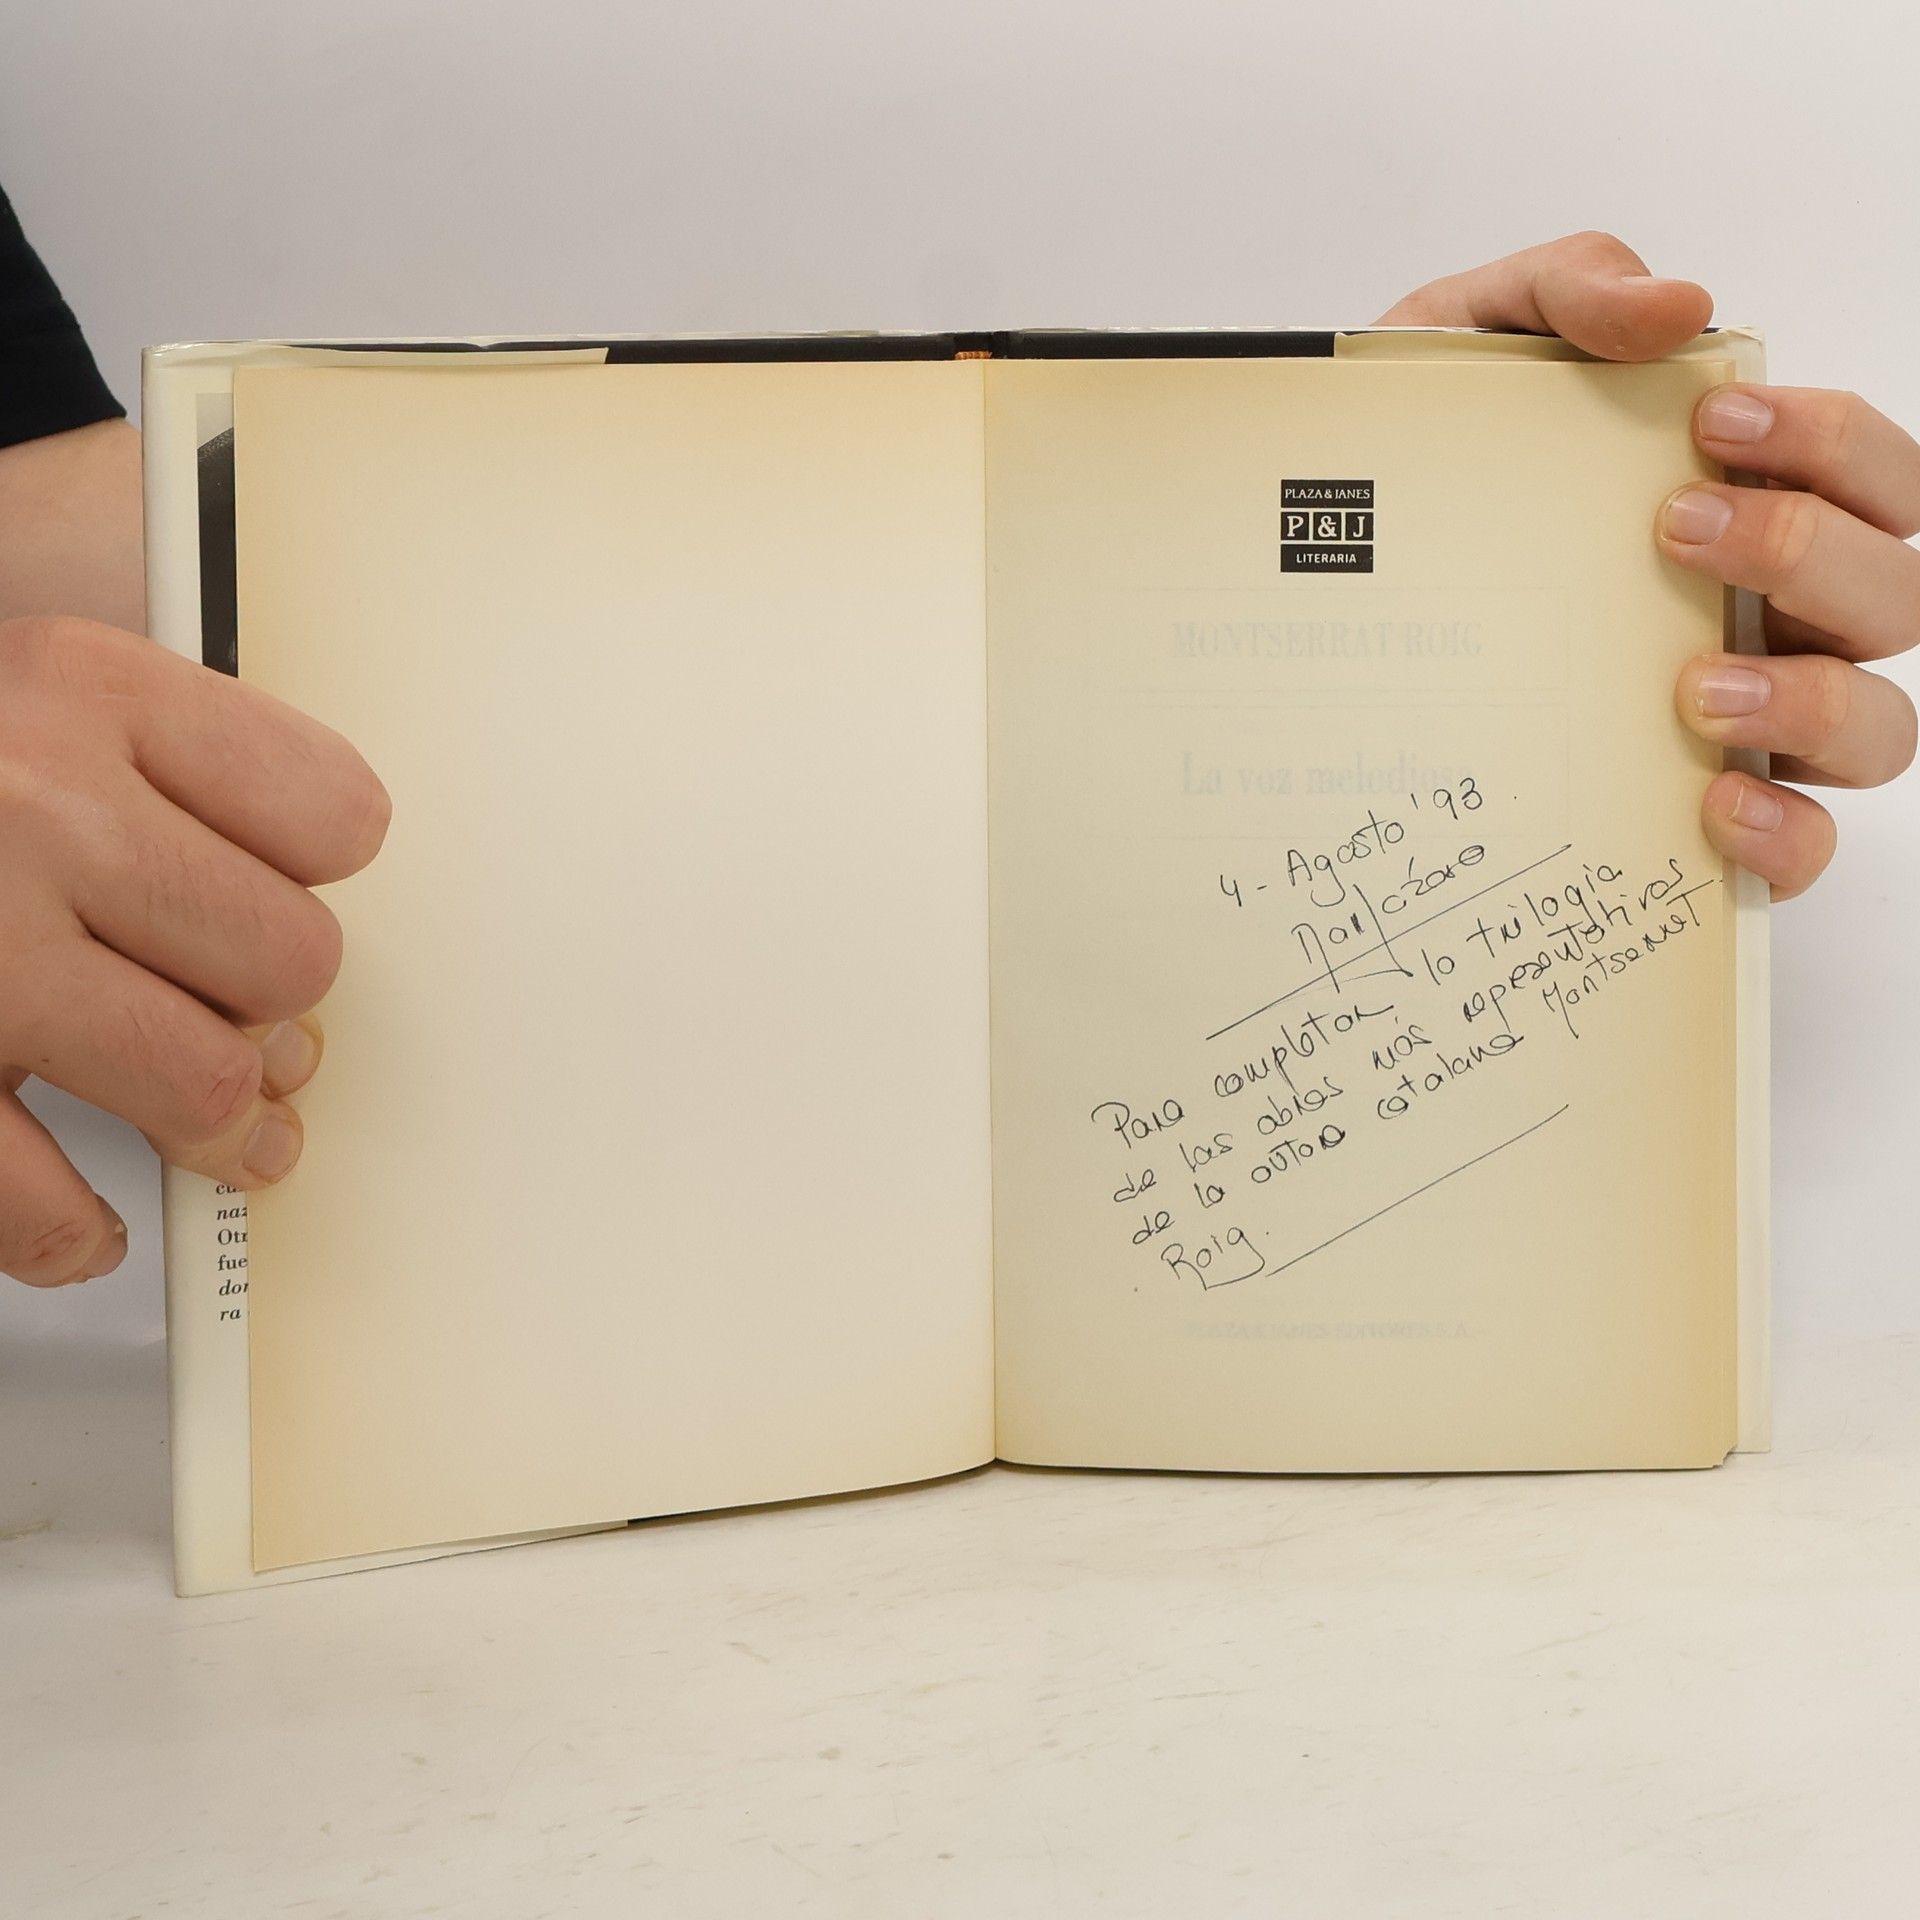 PLAZA & JANES
P & J
LITERARIA
MONTSERRAT ROIG
La voz melodiosa
4 - Agosto '93.
Para completar la trilogia
de las obras más representativas
de la autora catalana Montserrat
Roig.
PLAZA & JANES EDITORES S.A.
cu
naz
Otr
fue
dor
ra